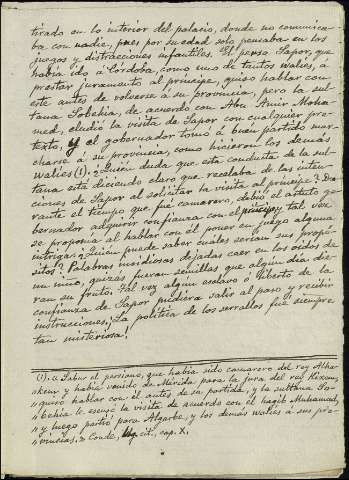 tirado en lo interior del palacio, donde no comunica-
ba con nadie, pues por su edad solo pensaba en los
juegos y distracciones infantiles. El persa Sapor, que
había ido a Córdoba, como uno de tantos walíes, á
prestar juramento al príncipe, quiso hablar con
este antes de volverse á su provincia, pero la sul-
tana Sobehia, de acuerdo con Abu Amir Moha-
med, eludió la visita de Sapor con cualquier pre-
texto, y el gobernador tomó á buen partido mar-
charse á su provincia, como hicieron los demás
walíes (1). ¿Quién duda que esta conducta de la sul-
tana está diciendo claro que recelaba de las inten-
ciones de Sapor al solicitar la visita al príncipe? Du-
rante el tiempo que fué camarero, debió el astuto go-
bernador adquirir confianza con el príncipe, y tal vez
se proponía al hablar con él poner en juego alguna
intriga; ¿quién puede saber cuales serían sus propó-
sitos? Palabras envidiosas dejadas caer en los oidos de
un niño, quizás fueran semillas que algún día die-
ran su fruto. Tal vez algun esclavo ó liberto de la
confianza de Sapor pudiera salir al paso y recibir
instrucciones; ¡La política de los serrallos fué siempre
tan misteriosa!
(1). « Sabur el persiano, que había sido camarero del rey Alha-
" kem y había venido de Mérida para la jura del rey Hixem,
" quiso hablar con él antes de su partida, y la sultana So-
" behia le escusó la visita de acuerdo con el hagib Muhamad,
" y luego partió para Algarbe, y los demás walíes á sus pro-
" vincias. » Conde, cit., cap. X.